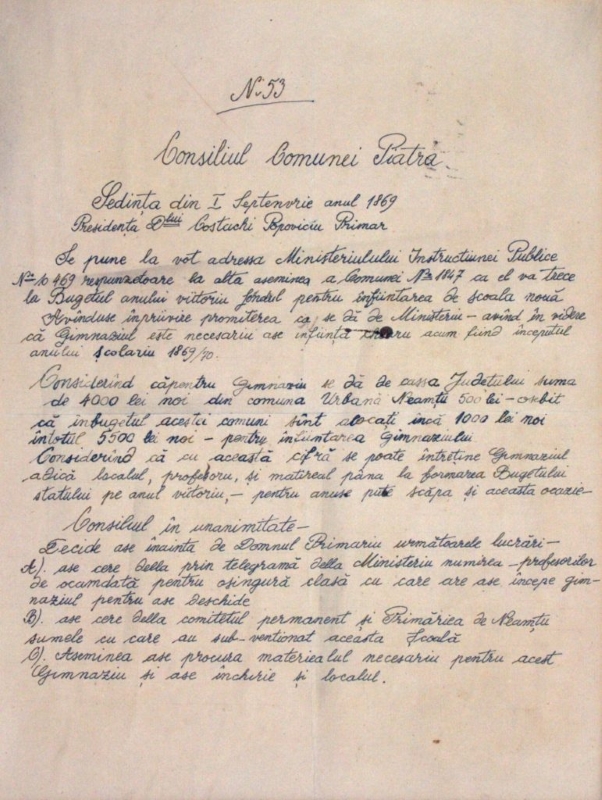 No 53
Consiliul Comunei Piatra
Ședința din I Septenvrie anul 1869
Presidenta Dlui Costachi Popoviciu Primar
Se pune la vot adressa Ministeriulului Instructiunei Publice
No 10469 respunzetoare la alta aseminea a Comunei No 1847 ca el va trece
la Bugetul anului viitoriu fondul pentru infiintarea de scoala nouă
Avînduse înprivire promiterea ce se dă de Ministeriu - avînd în videre
că Gimnaziul este necesariu ase infiinta acum fiind începutul
anului școlariu 1869/70.
Considerînd căpentru Gimnaziu se dă de cassa Județului suma
de 4000 lei noi din comuna Urbană Neamtu 500 lei - osebit
că inbugetul acestei comuni sînt alocati încă 1000 lei noi
intotul 5500 lei noi - pentru infiintarea Gimnaziului
Considerînd că cu această cifră se poate întreține Gimnaziul
adică localul, profesoru, și matireal pâna la formarea Bugetului
statului pe anul viitoriu, - pentru anuse pute scăpa și aceasta ocazie -
Consiliul în unanimitate -
Decide ase înainta de Domnul Primariu următoarele lucrări -
A). ase cere della prin telegramă della Ministeriu numirea profesorilor
de ocamdată pentru osingură clasă cu care are ase incepe gim-
naziul pentru ase deschide
B). ase cere della comitetul permanent și Primăriea de Neamțu
sumele cu care au sub-ventionat aceasta Școală
C). Aseminea ase procura materiealul necesariu pentru acest
Gimnaziu și ase inchirie și localul.